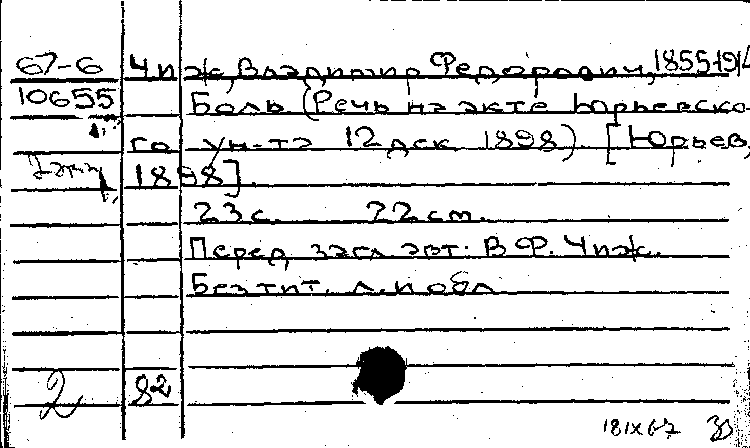 67-6 Чиж, Владимир Федорович, 1855-1914
10655 Боль (Речь на акте Юрьевско-
го ун-та 12 дек. 1898). [Юрьев,
1898].
23 с. 22 см.
Перед загл. авт.: В.Ф. Чиж.
Без тит. л. и обл.
2 82
181X67